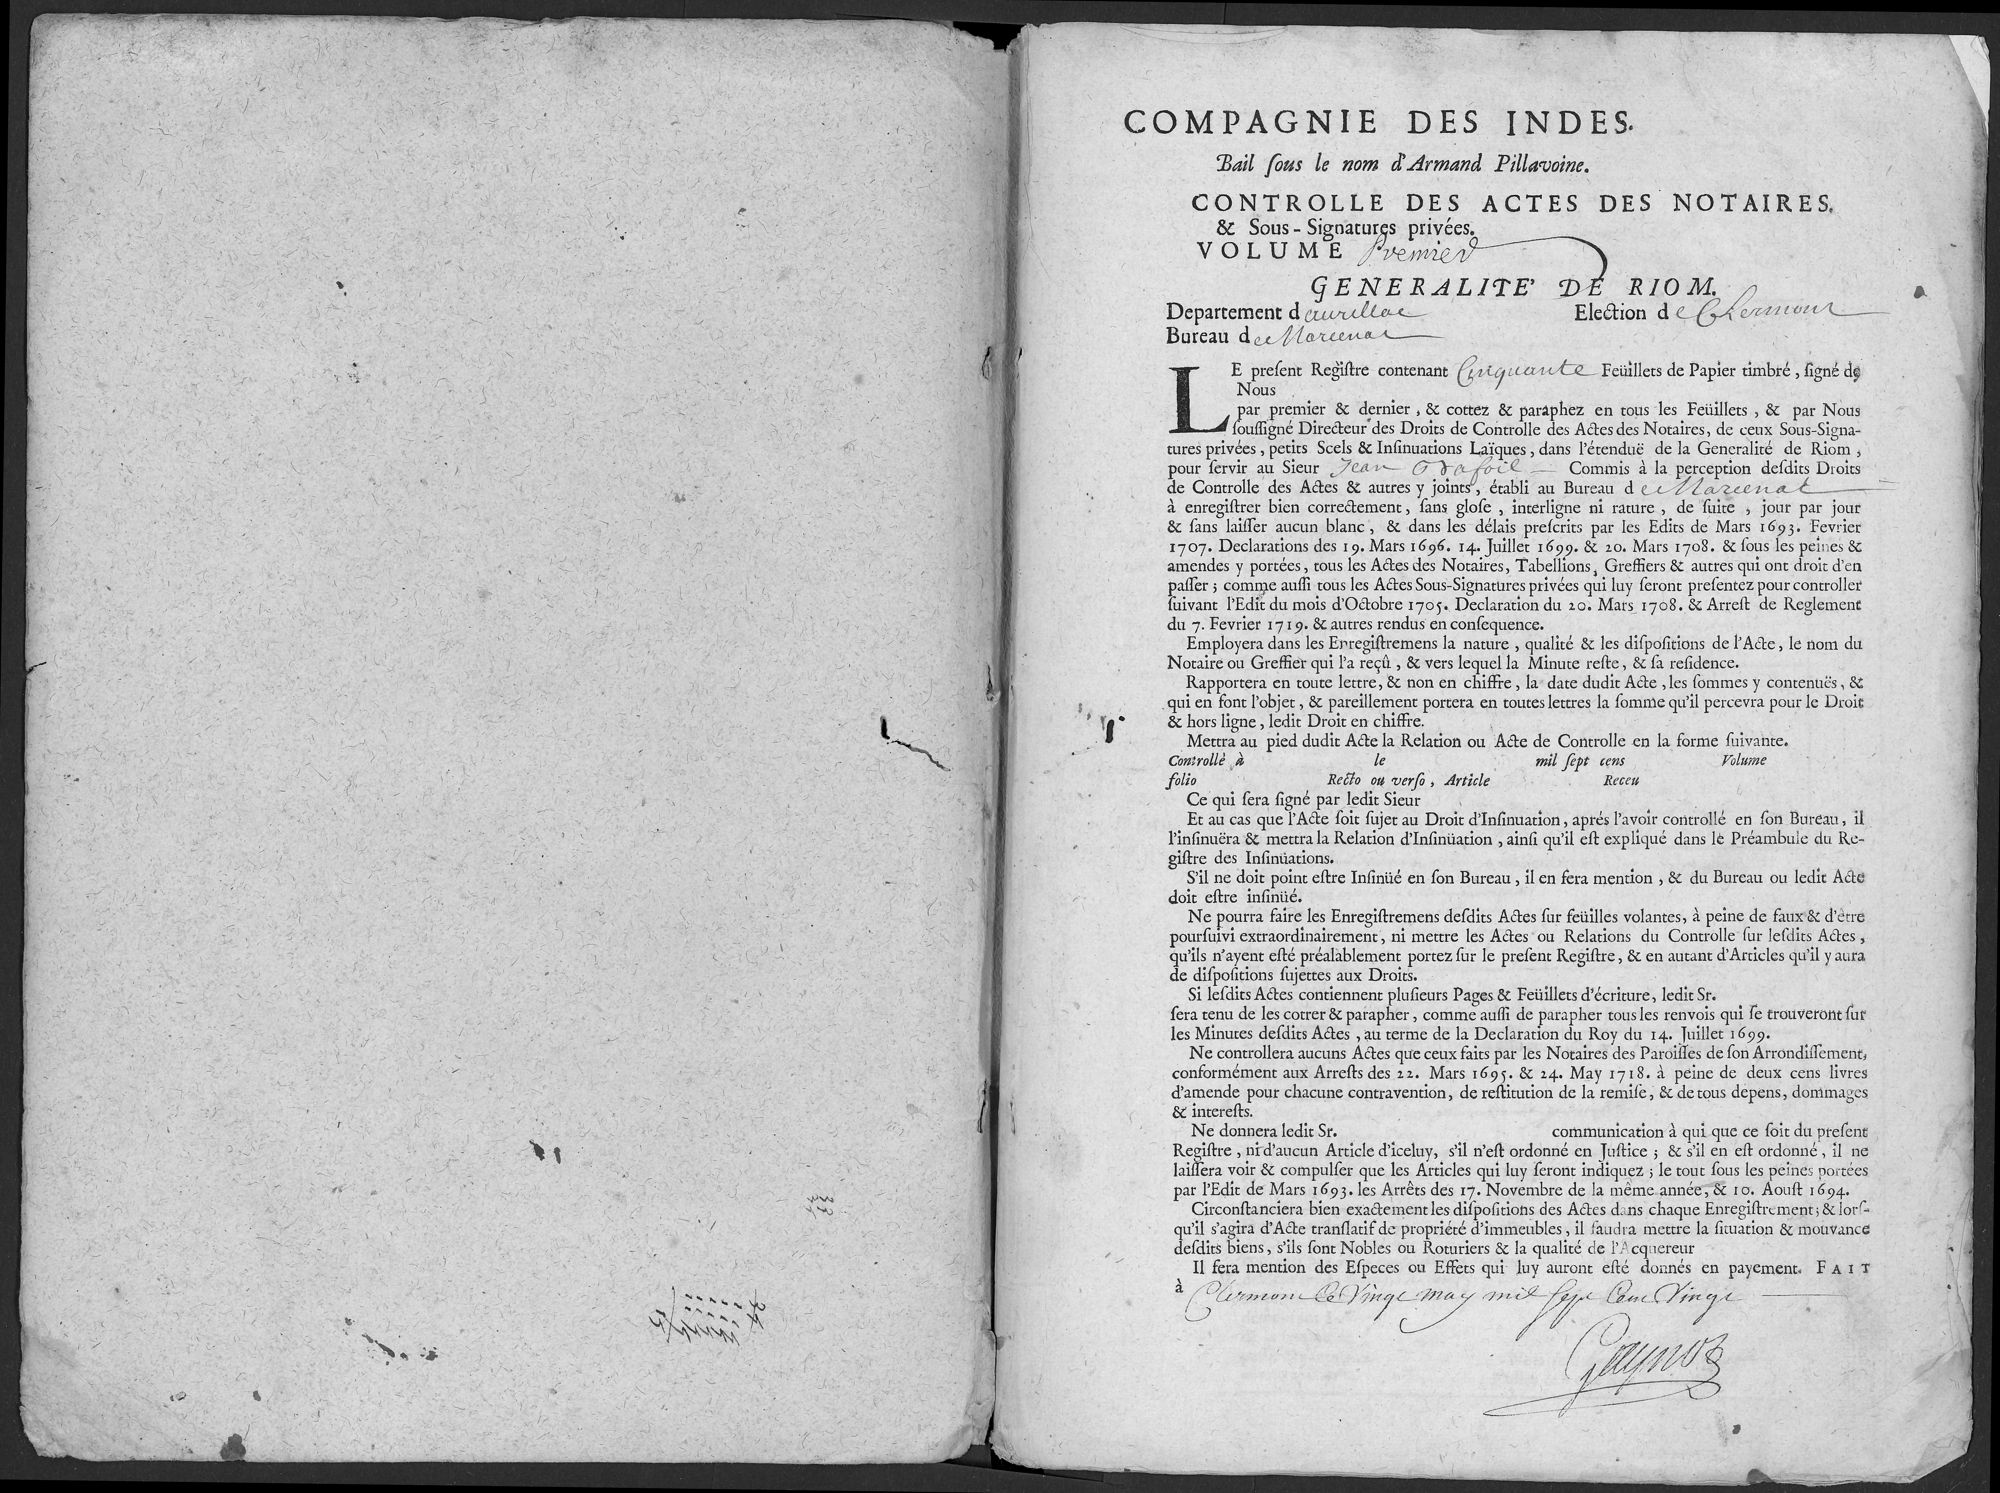 COMPAGNIE DES INDES.
Bail ſous le nom d'Armand Pillavoine.
CONTROLLE DES ACTES DES NOTAIRES,
& Sous-Signatures privées.
VOLUME Premier
GENERALITE' DE RIOM.
Departement d'aurillac Election de Clermont
Bureau de Marcenat
LE preſent Regiſtre contenant Cinquante Feüillets de Papier timbré, ſigné de
Nous
par premier & dernier, & cottez & paraphez en tous les Feüillets, & par Nous
ſouſſigné Directeur des Droits de Controlle des Actes des Notaires, de ceux Sous-Signa-
tures privées, petits Scels & Inſinuations Laïques, dans l'étenduë de la Generalité de Riom,
pour ſervir au Sieur Jean Commis à la perception deſdits Droits
de Controlle des Actes & autres y joints, établi au Bureau de Marcenat
à enregiſtrer bien correctement, ſans gloſe, interligne ni rature, de ſuite, jour par jour
& ſans laiſſer aucun blanc, & dans les délais preſcrits par les Edits de Mars 1693. Fevrier
1707. Declarations des 19. Mars 1696. 14. Juillet 1699. & 20. Mars 1708. & ſous les peines &
amendes y portées, tous les Actes des Notaires, Tabellions, Greffiers & autres qui ont droit d'en
paſſer; comme auſſi tous les Actes Sous-Signatures privées qui luy ſeront preſentez pour controller
ſuivant l'Edit du mois d'Octobre 1705. Declaration du 20. Mars 1708. & Arreſt de Reglement
du 7. Fevrier 1719. & autres rendus en conſequence.
Employera dans les Enregiſtremens la nature, qualité & les diſpoſitions de l'Acte, le nom du
Notaire ou Greffier qui l'a reçû, & vers lequel la Minute reſte, & ſa reſidence.
Rapportera en toute lettre, & non en chiffre, la date dudit Acte, les ſommes y contenuës, &
qui en font l'objet, & pareillement portera en toutes lettres la ſomme qu'il percevra pour le Droit
& hors ligne, ledit Droit en chiffre.
Mettra au pied dudit Acte la Relation ou Acte de Controlle en la forme ſuivante.
Controllé à le mil ſept cens Volume
folio Recto ou verſo, Article Receu
Ce qui ſera ſigné par ledit Sieur
Et au cas que l'Acte ſoit ſujet au Droit d'Inſinuation, aprés l'avoir controllé en ſon Bureau, il
l'inſinuëra & mettra la Relation d'Inſinüation, ainſi qu'il eſt expliqué dans le Préambule du Re-
giſtre des Inſinüations.
S'il ne doit point eſtre Inſinüé en ſon Bureau, il en fera mention, & du Bureau ou ledit Acte
doit eſtre inſinüé.
Ne pourra faire les Enregiſtremens deſdits Actes ſur feüilles volantes, à peine de faux & d'être
pourſuivi extraordinairement, ni mettre les Actes ou Relations du Controlle ſur leſdits Actes,
qu'ils n'ayent eſté préalablement portez ſur le preſent Regiſtre, & en autant d'Articles qu'il y aura
de diſpoſitions ſujettes aux Droits.
Si leſdits Actes contiennent pluſieurs Pages & Feüillets d'écriture, ledit Sr.
ſera tenu de les cotter & parapher, comme auſſi de parapher tous les renvois qui ſe trouveront ſur
les Minutes deſdits Actes, au terme de la Declaration du Roy du 14. Juillet 1699.
Ne controllera aucuns Actes que ceux faits par les Notaires des Paroiſſes de ſon Arrondiſſement,
conformément aux Arreſts des 22. Mars 1695. & 24. May 1718. à peine de deux cens livres
d'amende pour chacune contravention, de reſtitution de la remiſe, & de tous depens, dommages
& intereſts.
Ne donnera ledit Sr. communication à qui que ce ſoit du preſent
Regiſtre, ni d'aucun Article d'iceluy, s'il n'eſt ordonné en Juſtice; & s'il en eſt ordonné, il ne
laiſſera voir & compulſer que les Articles qui luy ſeront indiquez; le tout ſous les peines portées
par l'Edit de Mars 1693. les Arrêts des 17. Novembre de la même année, & 10. Aouſt 1694.
Circonſtanciera bien exactement les diſpoſitions des Actes dans chaque Enregiſtrement; & lorſ-
qu'il s'agira d'Acte tranſlatif de propriété d'immeubles, il faudra mettre la ſituation & mouvance
deſdits biens, s'ils ſont Nobles ou Roturiers & la qualité de l'Acquereur
Il fera mention des Eſpeces ou Effets qui luy auront eſté donnés en payement. FAIT
à Clermont Ce Vingt may mil sept Cent Vingt